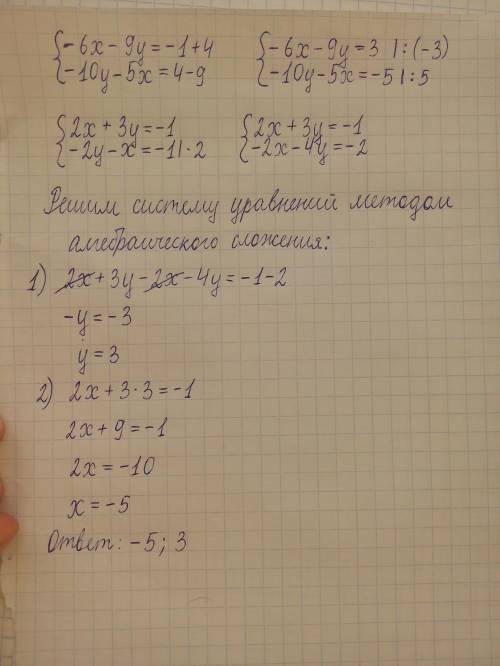 {-6x-9y=-1+4
{-10y-5x=4-9
{-6x-9y=3 |:(-3)
{-10y-5x=-5 |:5
{2x+3y=-1
{-2y-x=-1|·2
{2x+3y=-1
{-2x-4y=-2
Решим систему уравнений методом
алгебраического сложения:
1) 2x+3y-2x-4y=-1-2
-y=-3
y=3
2) 2x+3·3=-1
2x+9=-1
2x=-10
x=-5
Ответ: -5; 3